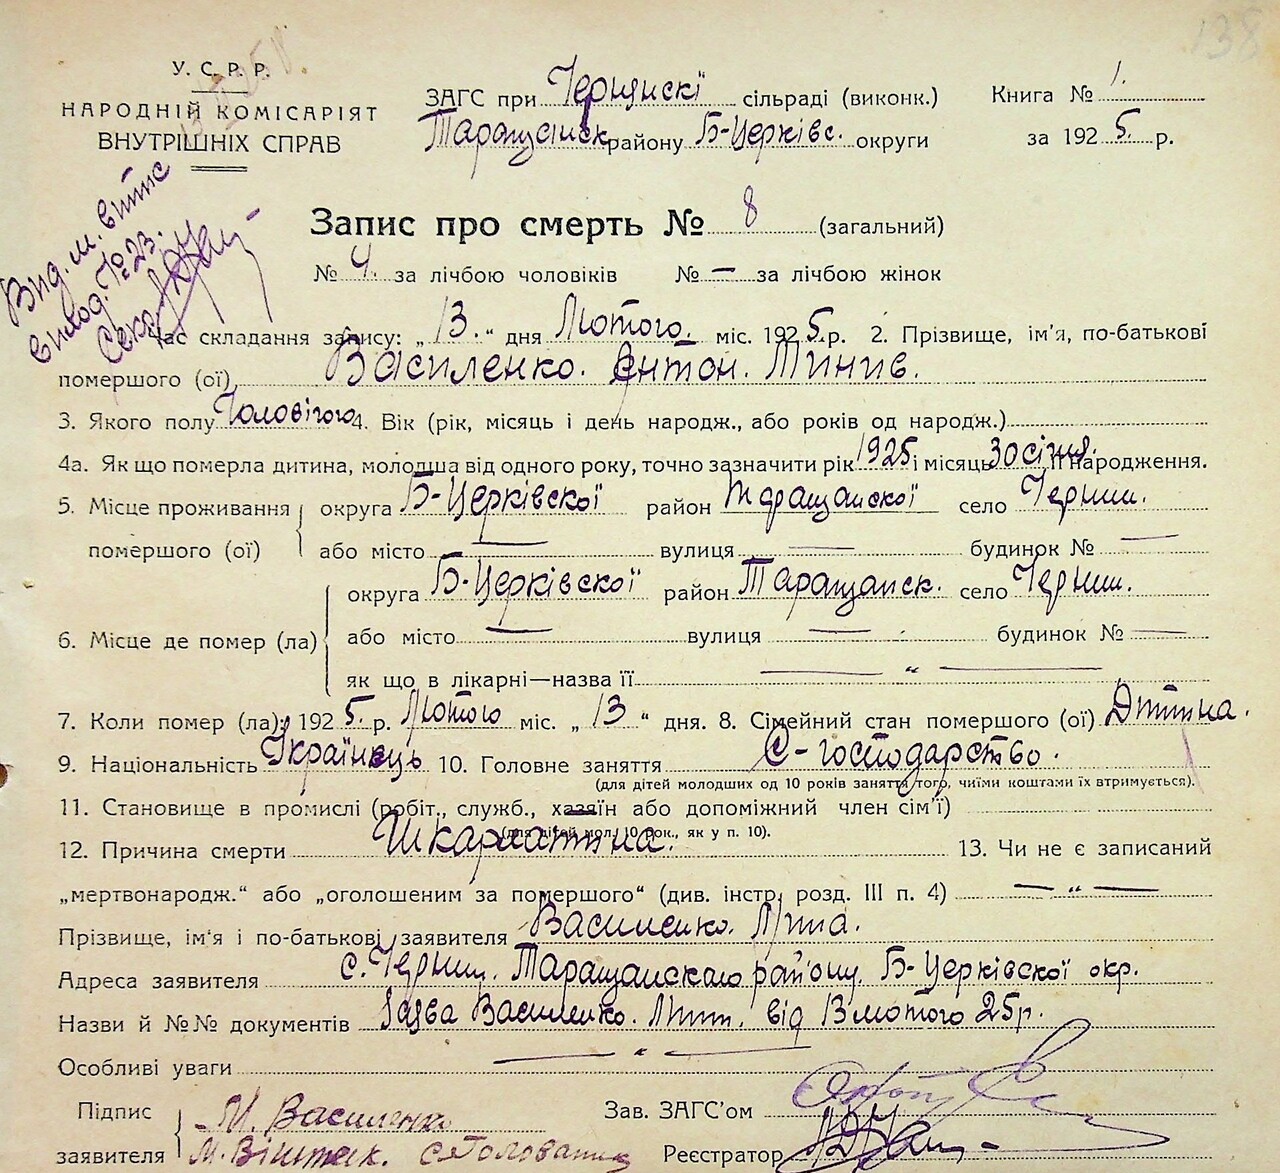 138
У. С. Р. Р.
НАРОДНІЙ КОМІСАРІЯТ
ВНУТРІШНІХ СПРАВ
ЗАГС при сільраді (виконк.) Книга № 1.
Таращанск району Б-Церківс. округи за 1925 р.
Вид. м. витяс
виход. № 23.
Запис про смерть № 8 (загальний)
№ 4. за лічбою чоловіків № — за лічбою жінок
Час складання запису: „13.“ дня Лютого міс. 1925 р. 2. Прізвище, ім'я, по-батькові
помершого (ої) Василенко. Антон.
3. Якого полу 4. Вік (рік, місяць і день народж., або років од народж.)
4а. Як що померла дитина, молодша від одного року, точно зазначити рік 1925 і місяць 30 січня. її народження.
5. Місце проживання округа Б-Церківскої район Таращанскої село Чернин.
помершого (ої) або місто — вулиця — будинок № —
округа Б-Церківскої район Таращанск. село Чернин.
6. Місце де помер (ла) або місто — вулиця — будинок № —
як що в лікарні—назва її — „ —
7. Коли помер (ла): 1925. р. Лютого міс. „13“ дня. 8. Сімейний стан помершого (ої) Дитина.
9. Національність Українець 10. Головне заняття С-господарство.
(для дітей молодших од 10 років заняття того, чиїми коштами їх втримується).
11. Становище в промислі (робіт., служб., хазяїн або допоміжний член сім'ї)
(для дітей мол. 10 рок., як у п. 10).
12. Причина смерти Шкарлатина. 13. Чи не є записаний
„мертвонародж.“ або „оголошеним за помершого“ (див. інстр. розд. III п. 4) — „ —
Прізвище, ім'я і по-батькові заявителя Василенко.
Адреса заявителя с. Чернин. Таращанскаго району. Б-Церківскої окр.
Назви й №№ документів Заява Василенко. від 13 лютого 25 р.
Особливі уваги — „ —
Підпис М. Василенко Зав. ЗАГС'ом
заявителя Реєстратор